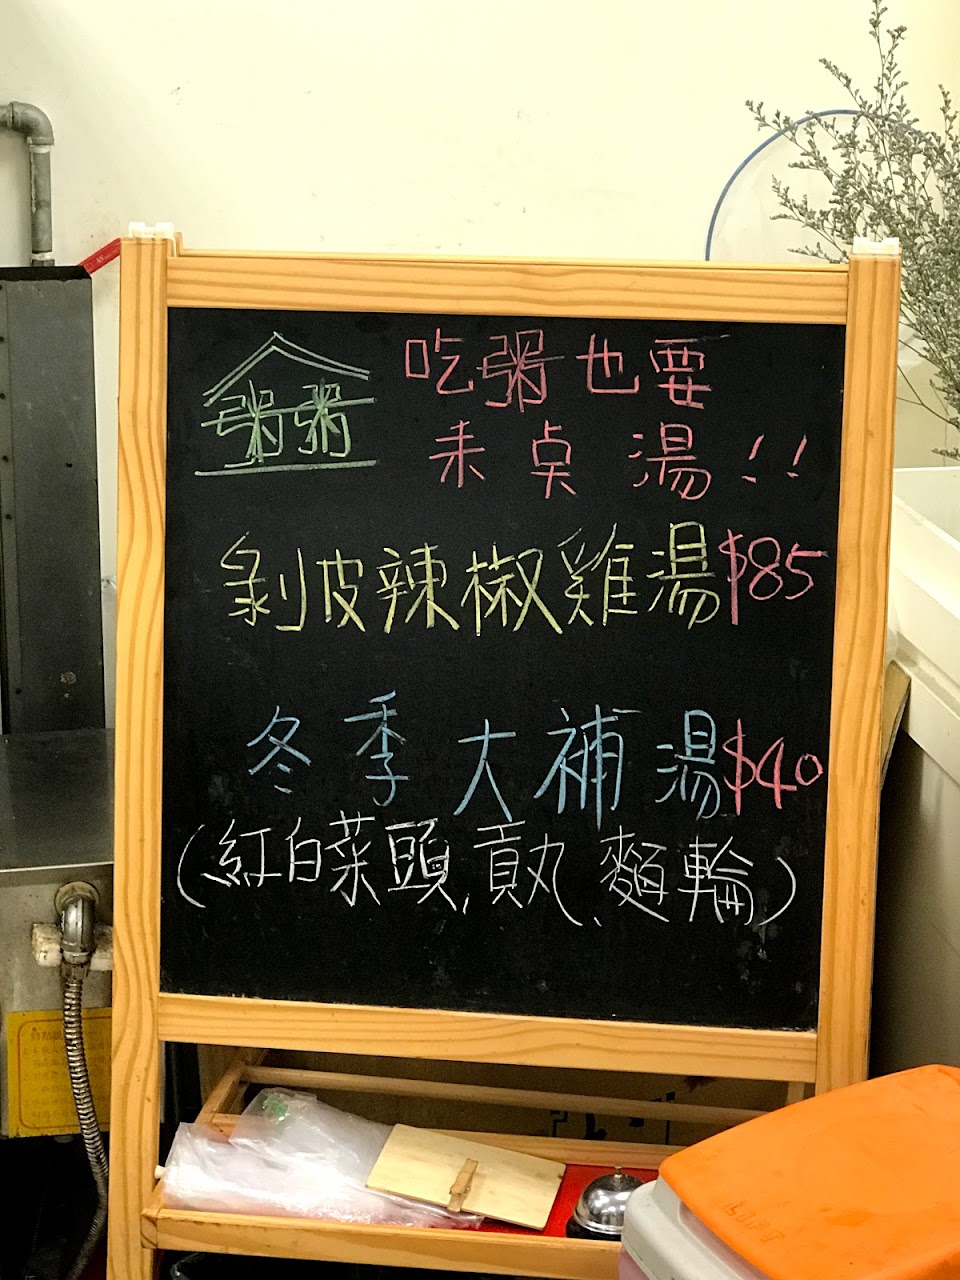 粥粥
吃粥也要
來點湯!!
剝皮辣椒雞湯$85
冬季大補湯$40
(紅白菜頭、貢丸、麵輪)